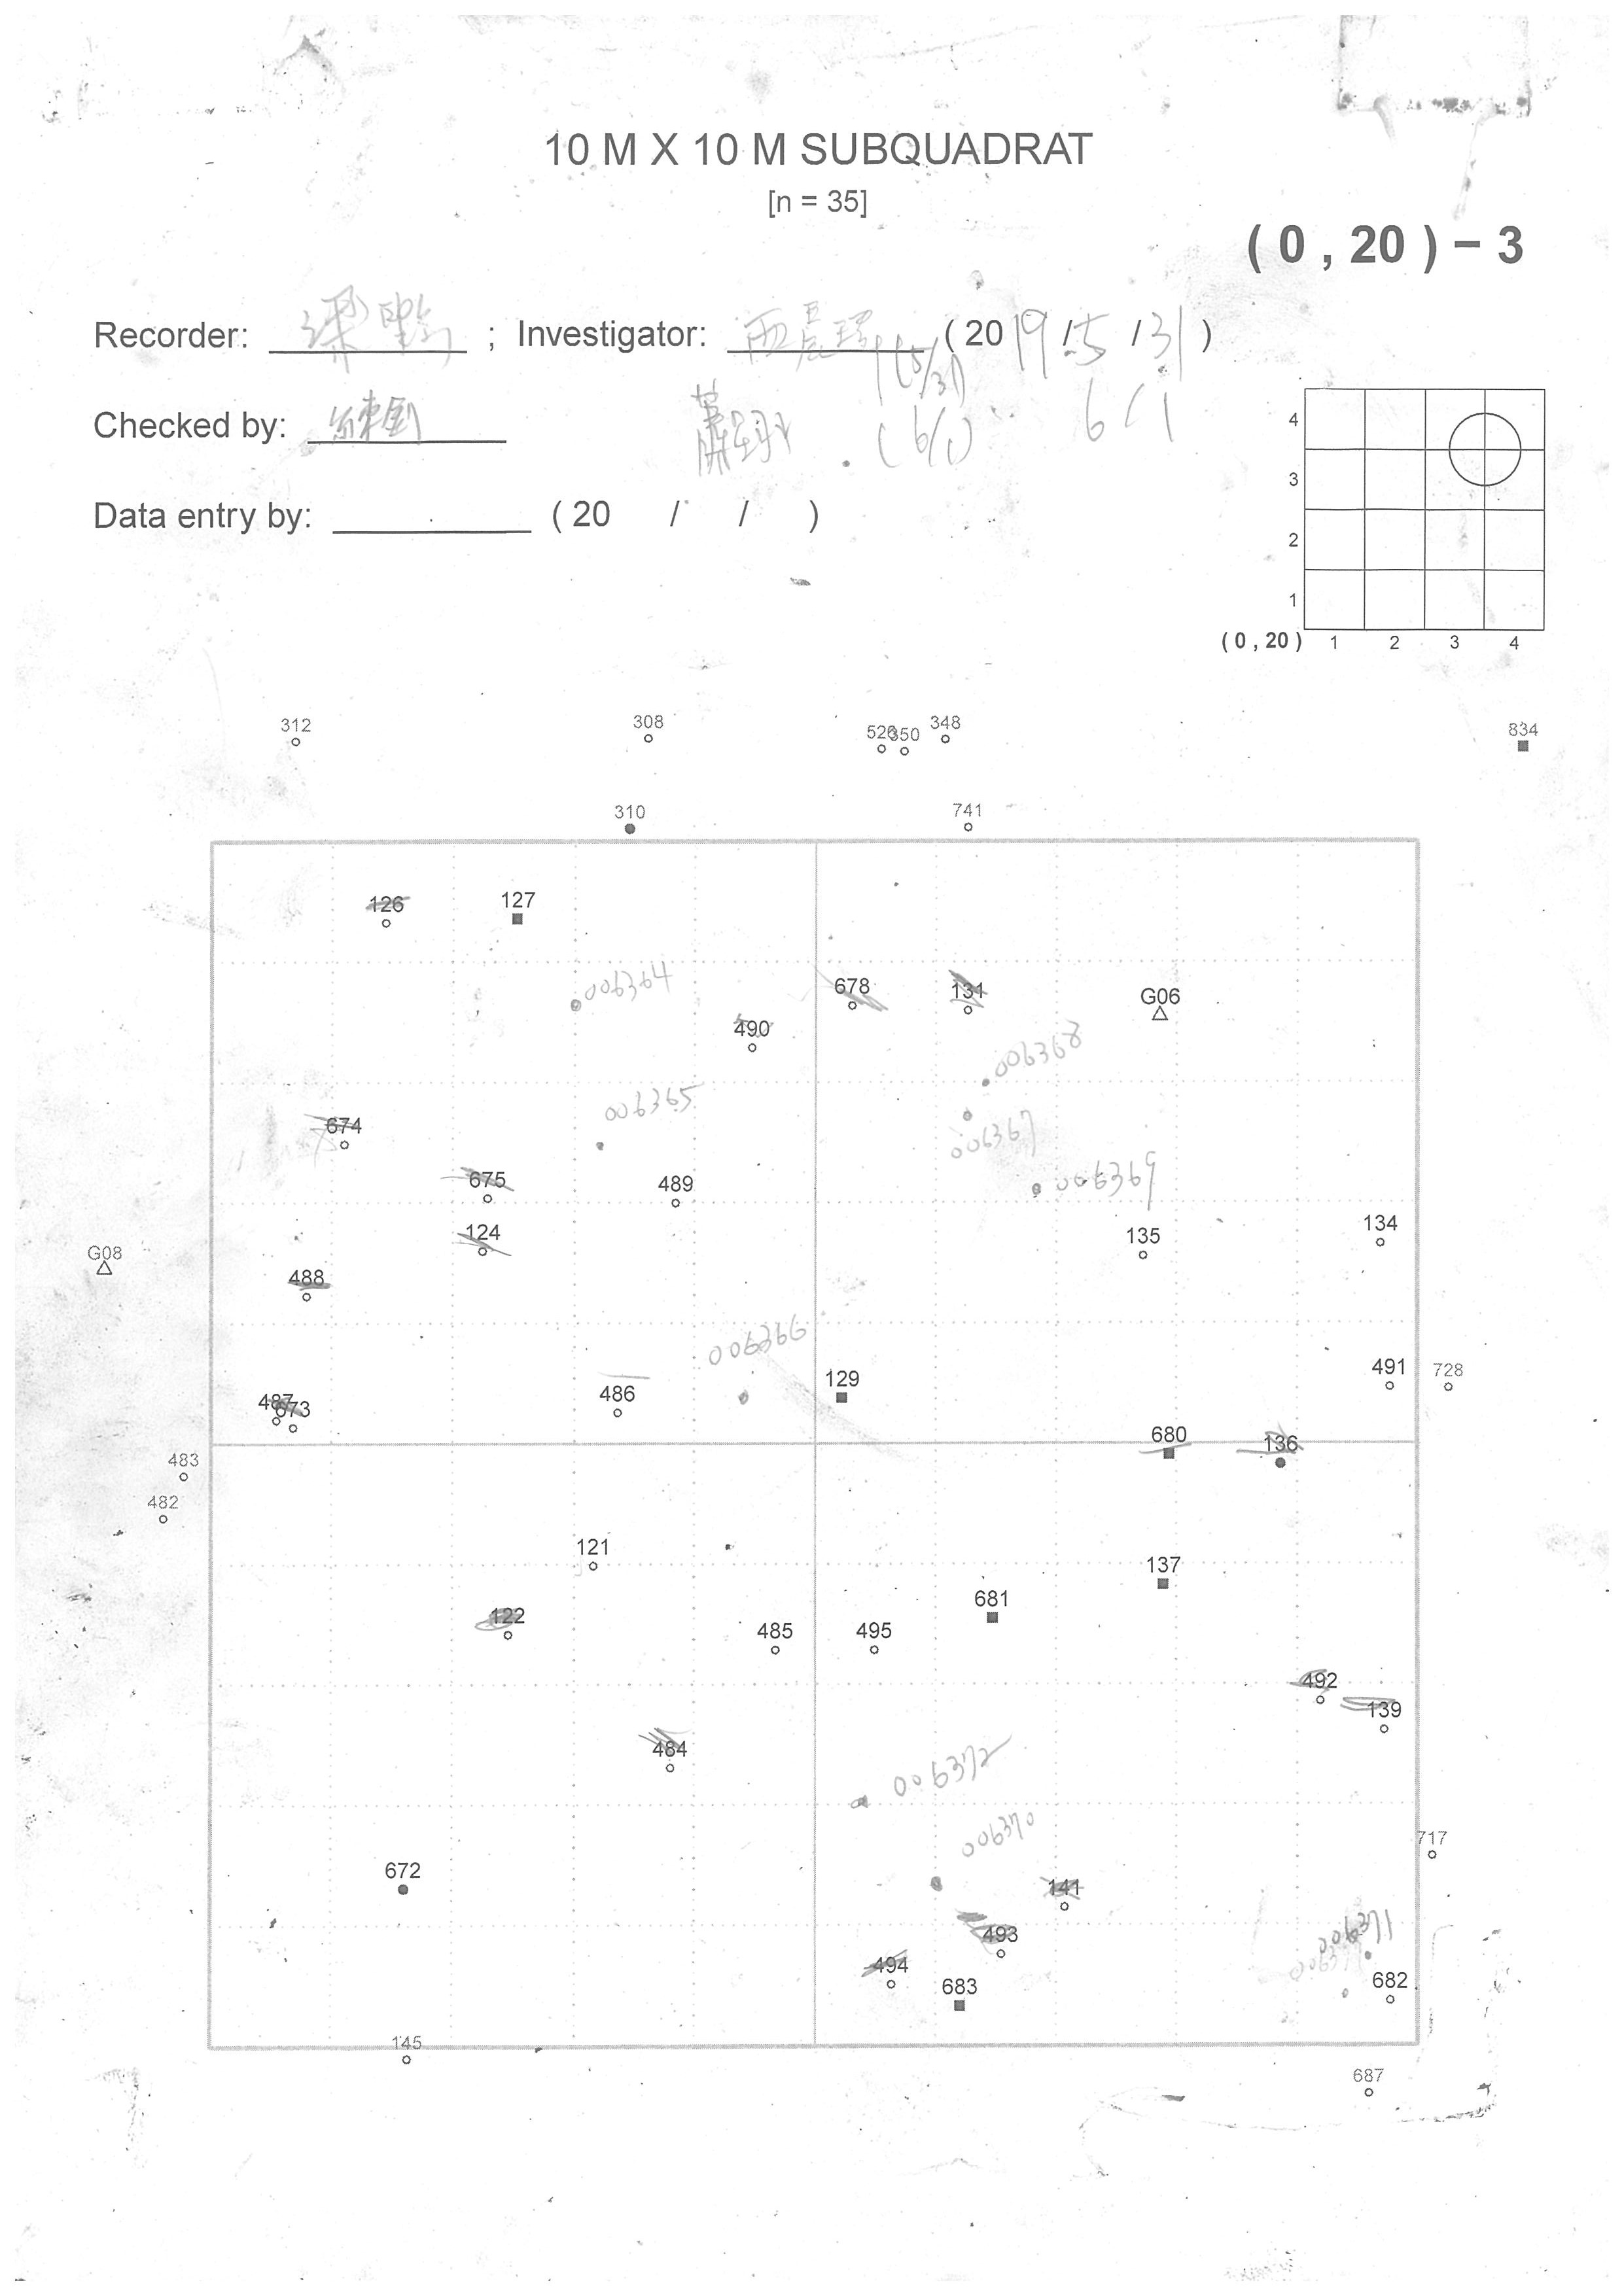 10 M X 10 M SUBQUADRAT
[n = 35]
( 0 , 20 ) - 3
Recorder: ; Investigator: ( 2019 / 5 / 31 )
(5/31)
Checked by: (6/1) 6/1
Data entry by: ( 20 / / )
4
3
2
1
( 0 , 20 ) 1 2 3 4
312 308 526 350 348 834
310 741
126 127
006364 678 131 G06
490
006368
006365
674 006367
675 489 006369
124 135 134
G08
488
006366
487 673 486 129 491 728
680 136
483
482
121 137
681
122 485 495
492
139
484
006372
006370 717
672 141
493 006371
494
683 682
145
687